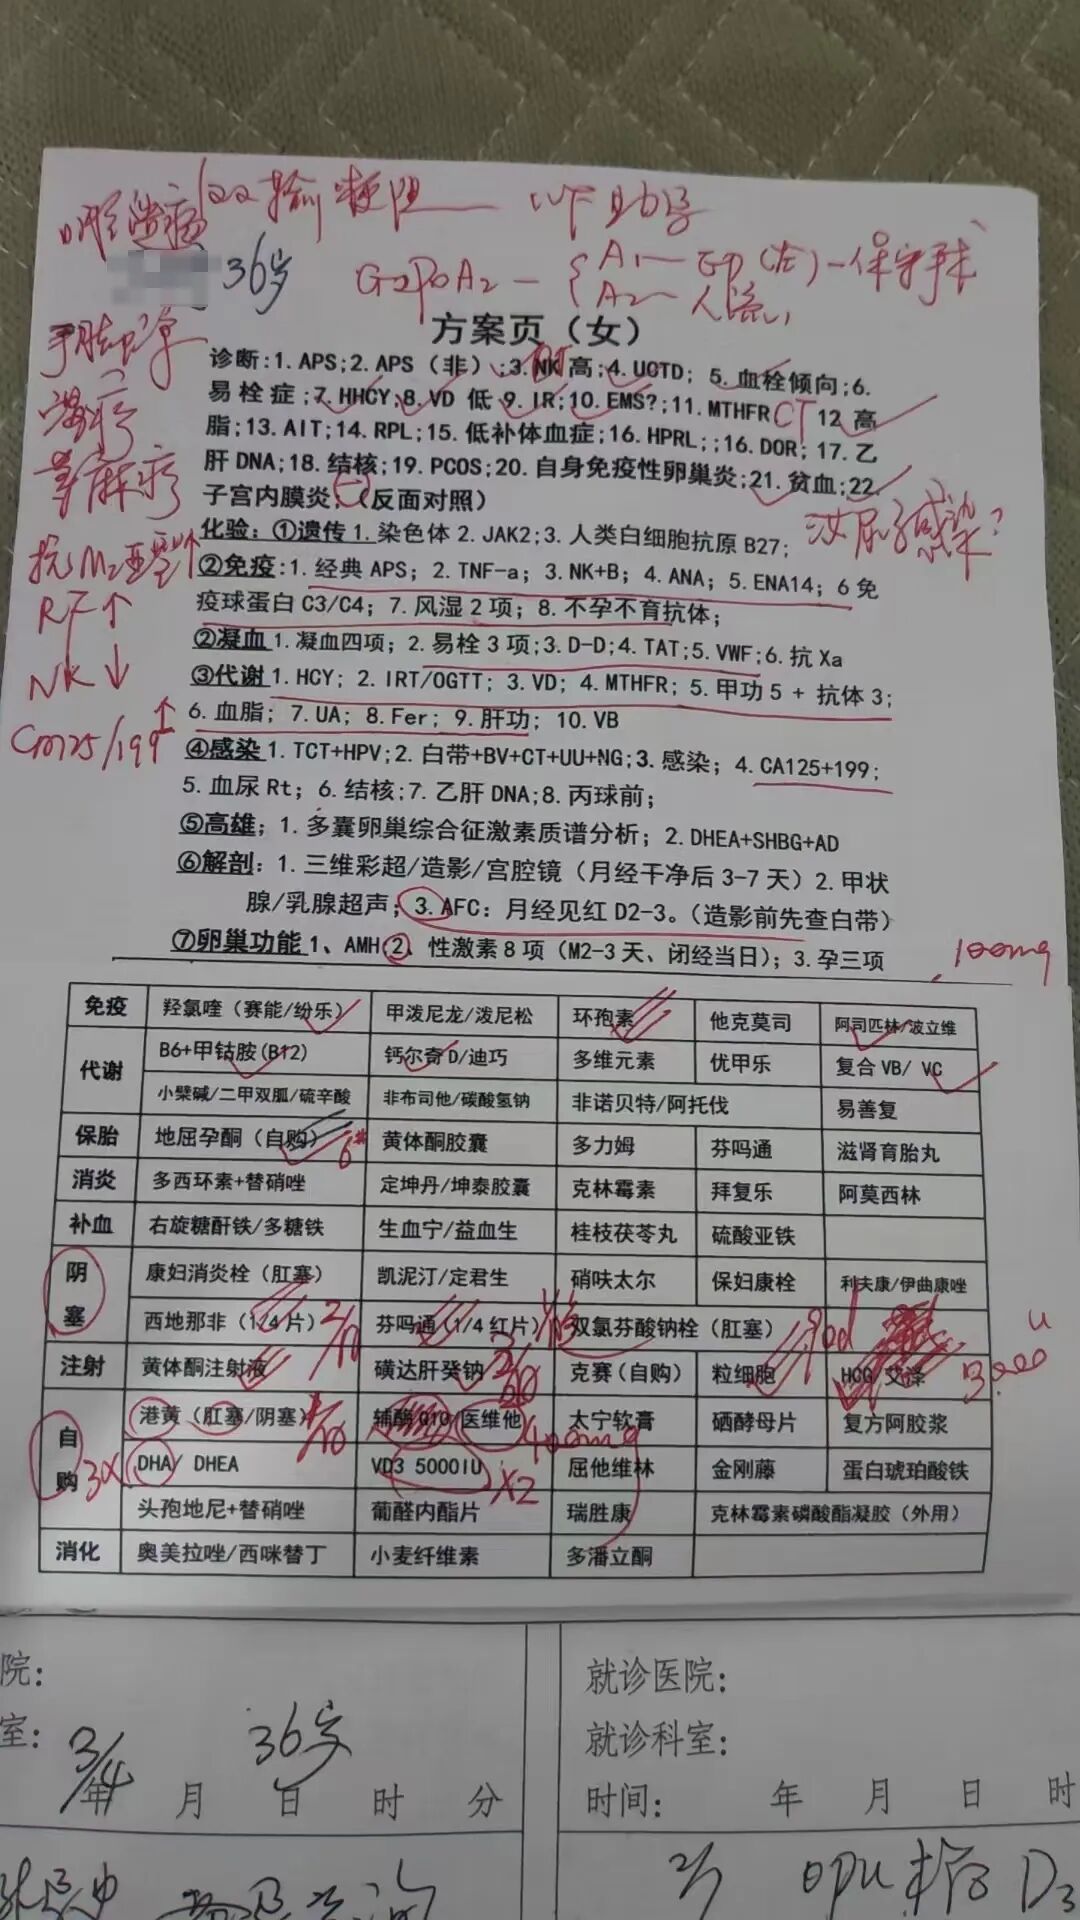 36岁
G2P0A2-
A1-EP(左)-保守手术
A2-人流
方案页（女）
诊断:1. APS;2. APS（非）;3. NK 高;4. UCTD; 5. 血栓倾向;6.
易栓症;7. HHCY;8. VD 低 9. IR;10. EMS?;11. MTHFR CT 12. 高
脂;13. AIT;14. RPL;15. 低补体血症;16. HPRL;;16. DOR; 17. 乙
肝 DNA;18. 结核;19. PCOS;20. 自身免疫性卵巢炎;21. 贫血;22.
子宫内膜炎;(反面对照)
荨麻疹
感染?
化验: ①遗传 1. 染色体 2. JAK2;3. 人类白细胞抗原 B27;
抗M2亚型↑
②免疫:1. 经典 APS; 2. TNF-a; 3. NK+B; 4. ANA; 5. ENA14; 6 免
疫球蛋白 C3/C4; 7. 风湿 2 项; 8. 不孕不育抗体;
RF↑
②凝血 1. 凝血四项; 2. 易栓 3 项;3. D-D;4. TAT;5. VWF;6. 抗 Xa
NK↓
③代谢 1. HCY; 2. IRT/OGTT; 3. VD; 4. MTHFR; 5. 甲功 5 + 抗体 3;
6. 血脂; 7. UA; 8. Fer; 9. 肝功; 10. VB
④感染 1. TCT+HPV;2. 白带+BV+CT+UU+NG;3. 感染; 4. CA125+199;
5. 血尿 Rt; 6. 结核;7. 乙肝 DNA;8. 丙球前;
⑤高雄; 1. 多囊卵巢综合征激素质谱分析; 2. DHEA+SHBG+AD
⑥解剖: 1. 三维彩超/造影/宫腔镜（月经干净后 3-7 天）2. 甲状
腺/乳腺超声; 3. AFC: 月经见红 D2-3。（造影前先查白带）
⑦卵巢功能 1、AMH 2、性激素 8 项（M2-3 天、闭经当日）; 3. 孕三项
100mg
免疫 羟氯喹（赛能/纷乐） 甲泼尼龙/泼尼松 环孢素 他克莫司 阿司匹林/波立维
代谢 B6+甲钴胺(B12) 钙尔奇 D/迪巧 多维元素 优甲乐 复合 VB/ VC
小檗碱/二甲双胍/硫辛酸 非布司他/碳酸氢钠 非诺贝特/阿托伐 易善复
保胎 地屈孕酮（自购） 6# 黄体酮胶囊 多力姆 芬吗通 滋肾育胎丸
消炎 多西环素+替硝唑 定坤丹/坤泰胶囊 克林霉素 拜复乐 阿莫西林
补血 右旋糖酐铁/多糖铁 生血宁/益血生 桂枝茯苓丸 硫酸亚铁
阴塞 康妇消炎栓（肛塞） 凯泥汀/定君生 硝呋太尔 保妇康栓 利夫康/伊曲康唑
西地那非（1/4 片） 芬吗通（1/4 红片） 双氯芬酸钠栓（肛塞）
注射 黄体酮注射液 磺达肝癸钠 克赛（自购） 粒细胞 HCG/艾泽 3000u
自购 港黄（肛塞/阴塞） 辅酶 Q10/医维他 400mg 太宁软膏 硒酵母片 复方阿胶浆
DHA/ DHEA VD3 5000IU X2 屈他维林 金刚藤 蛋白琥珀酸铁
头孢地尼+替硝唑 葡醛内酯片 瑞胜康 克林霉素磷酸酯凝胶（外用）
消化 奥美拉唑/西咪替丁 小麦纤维素 多潘立酮
院:
室:
36岁
年 月 日 时 分
就诊医院:
就诊科室:
时间: 年 月 日 时
OPU术后 D3